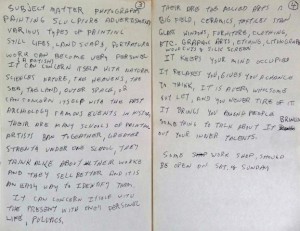 SUBJECT MATTER PHOTOGRAPHY
PAINTING SCULPTURE ADVERTISEMENTS
VARIOUS TYPES OF PAINTING
STILL LIFES, LAND SCAPES, PORTRAITURE
WORK CAN BECOME VERY PERSONAL
IT CAN CONCERN ITSELF WITH NATURE
SCIENCES NATURE, THE HEAVENS, THE
SEA, THE LAND, OUTER SPACE, OR
CAN CONCERN ITSELF WITH THE PAST
FAMOUS EVENTS IN HISTORY
THEIR ARE MANY SCHOOLS OF PAINTING
ARTISTS BAN TOGETHER, GREATER
STRENGTH UNDER ONE SCHOOL, THEY
THINK ALIKE ABOUT THEIR WORKS
AND THEY SELL BETTER AND IT IS
AN EASY WAY TO IDENTIFY THEM.
IT CAN CONCERN ITSELF WITH
THE PRESENT WITH THEIR PERSONAL
LIFE, POLITICS.
THEIR ARE THE ALLIED ARTS A
BIG FIELD, CERAMICS, TEXTILES STAIN
GLASS WINDOWS, FURNITURE, CLOTHING,
ETC. GRAPHIC ARTS, ETCHING, LITHOGRAPHY
WOOD CUTS, SILK SCREEN
IT KEEPS YOUR MIND OCCUPIED
IT RELAXES YOU, GIVES YOU A CHANCE
TO THINK, IT IS ALWAYS WITH SOME
LEFT, AND YOU NEVER TIRE OF IT
IT BRINGS YOU AROUND PEOPLE
SOMETHING TO TALK ABOUT IT BRINGS
OUT YOUR INNER TALENTS.
SOME WORK SHOPS SHOULD
BE OPEN ON SAT. & SUNDAY